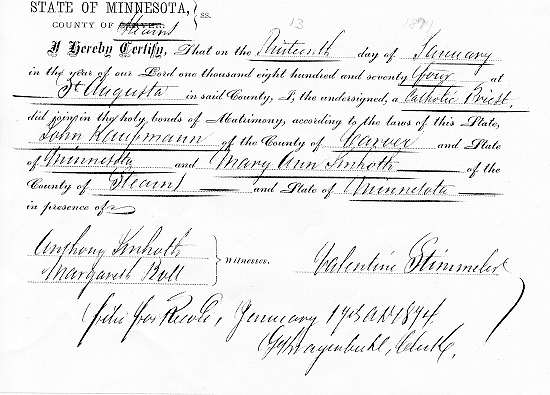 STATE OF MINNESOTA, } ss.
13 1874
COUNTY OF Stearns
I Hereby Certify, That on the Thirteenth day of January
in the year of our Lord one thousand eight hundred and seventy four at
St Augusta in said County, I, the undersigned, a Catholic Priest,
did join in the holy bonds of Matrimony, according to the laws of this State,
John Kaufmann of the County of Carver and State
of Minnesota and Mary Ann Imholt of the
County of Stearns and State of Minnesota
in presence of
Anthony Imholt
Margareth Bull } Witnesses. Valentine Stimmler
filed for Record, January 19th A.D. 1874.
Clerk.